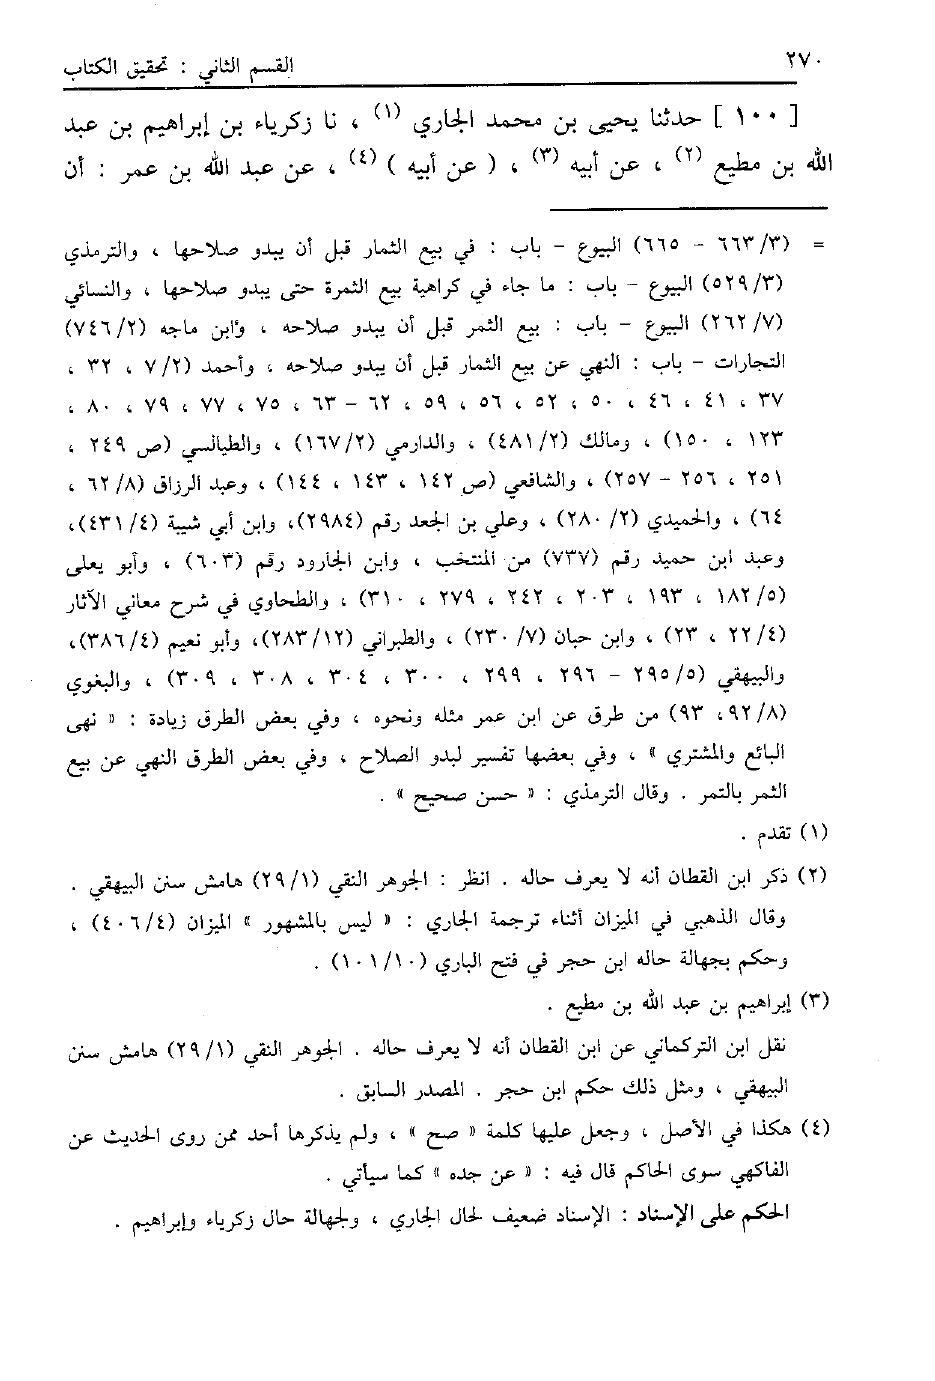 ٢٧٠
القسم الثاني : تحقيق الكتاب
[ ١٠٠ ] حدثنا يحيى بن محمد الجاري (١) ، نا زكرياء بن إبراهيم بن عبد
الله بن مطيع (٢) ، عن أبيه (٣) ، ( عن أبيه ) (٤) ، عن عبد الله بن عمر : أن
= (٣/ ٦٦٣ - ٦٦٥) البيوع - باب : في بيع الثمار قبل أن يبدو صلاحها ، والترمذي
(٣/ ٥٢٩) البيوع - باب : ما جاء في كراهية بيع الثمرة حتى يبدو صلاحها ، والنسائي
(٧/ ٢٦٢) البيوع - باب : بيع الثمر قبل أن يبدو صلاحه ، وابن ماجه (٢/ ٧٤٦)
التجارات - باب : النهي عن بيع الثمار قبل أن يبدو صلاحه ، وأحمد (٢/ ٧ ، ٣٢ ،
٣٧ ، ٤١ ، ٤٦ ، ٥٠ ، ٥٢ ، ٥٦ ، ٥٩ ، ٦٢ - ٦٣ ، ٧٥ ، ٧٧ ، ٧٩ ، ٨٠ ،
١٢٣ ، ١٥٠) ، ومالك (٢/ ٤٨١) ، والدارمي (٢/ ١٦٧) ، والطيالسي (ص ٢٤٩ ،
٢٥١ ، ٢٥٦ - ٢٥٧) ، والشافعي (ص ١٤٢ ، ١٤٣ ، ١٤٤) ، وعبد الرزاق (٨/ ٦٢ ،
٦٤) ، والحميدي (٢/ ٢٨٠) ، وعلي بن الجعد رقم (٢٩٨٤)، وابن أبي شيبة (٤/ ٤٣١)،
وعبد ابن حميد رقم (٧٣٧) من المنتخب ، وابن الجارود رقم (٦٠٣) ، وأبو يعلى
(٥/ ١٨٢ ، ١٩٣ ، ٢٠٣ ، ٢٤٢ ، ٢٧٩ ، ٣١٠) ، والطحاوي في شرح معاني الآثار
(٤/ ٢٢ ، ٢٣) ، وابن حبان (٧/ ٢٣٠) ، والطبراني (١٢/ ٢٨٣)، وأبو نعيم (٤/ ٣٨٦)،
والبيهقي (٥/ ٢٩٥ - ٢٩٦ ، ٢٩٩ ، ٣٠٠ ، ٣٠٤ ، ٣٠٨ ، ٣٠٩) ، والبغوي
(٨/ ٩٢، ٩٣) من طرق عن ابن عمر مثله ونحوه ، وفي بعض الطرق زيادة : « نهى
البائع والمشتري » ، وفي بعضها تفسير لبدو الصلاح ، وفي بعض الطرق النهي عن بيع
الثمر بالتمر . وقال الترمذي : « حسن صحيح » .
(١) تقدم .
(٢) ذكر ابن القطان أنه لا يعرف حاله . انظر : الجوهر النقي (١/ ٢٩) هامش سنن البيهقي .
وقال الذهبي في الميزان أثناء ترجمة الجاري : « ليس بالمشهور » الميزان (٤/ ٤٠٦) ،
وحكم بجهالة حاله ابن حجر في فتح الباري (١٠/ ١٠١) .
(٣) إبراهيم بن عبد الله بن مطيع .
نقل ابن التركماني عن ابن القطان أنه لا يعرف حاله . الجوهر النقي (١/ ٢٩) هامش سنن
البيهقي ، ومثل ذلك حكم ابن حجر . المصدر السابق .
(٤) هكذا في الأصل ، وجعل عليها كلمة « صح » ، ولم يذكرها أحد ممن روى الحديث عن
الفاكهي سوى الحاكم قال فيه : « عن جده » كما سيأتي .
الحكم على الإسناد : الإسناد ضعيف لحال الجاري ، ولجهالة حال زكرياء وإبراهيم .